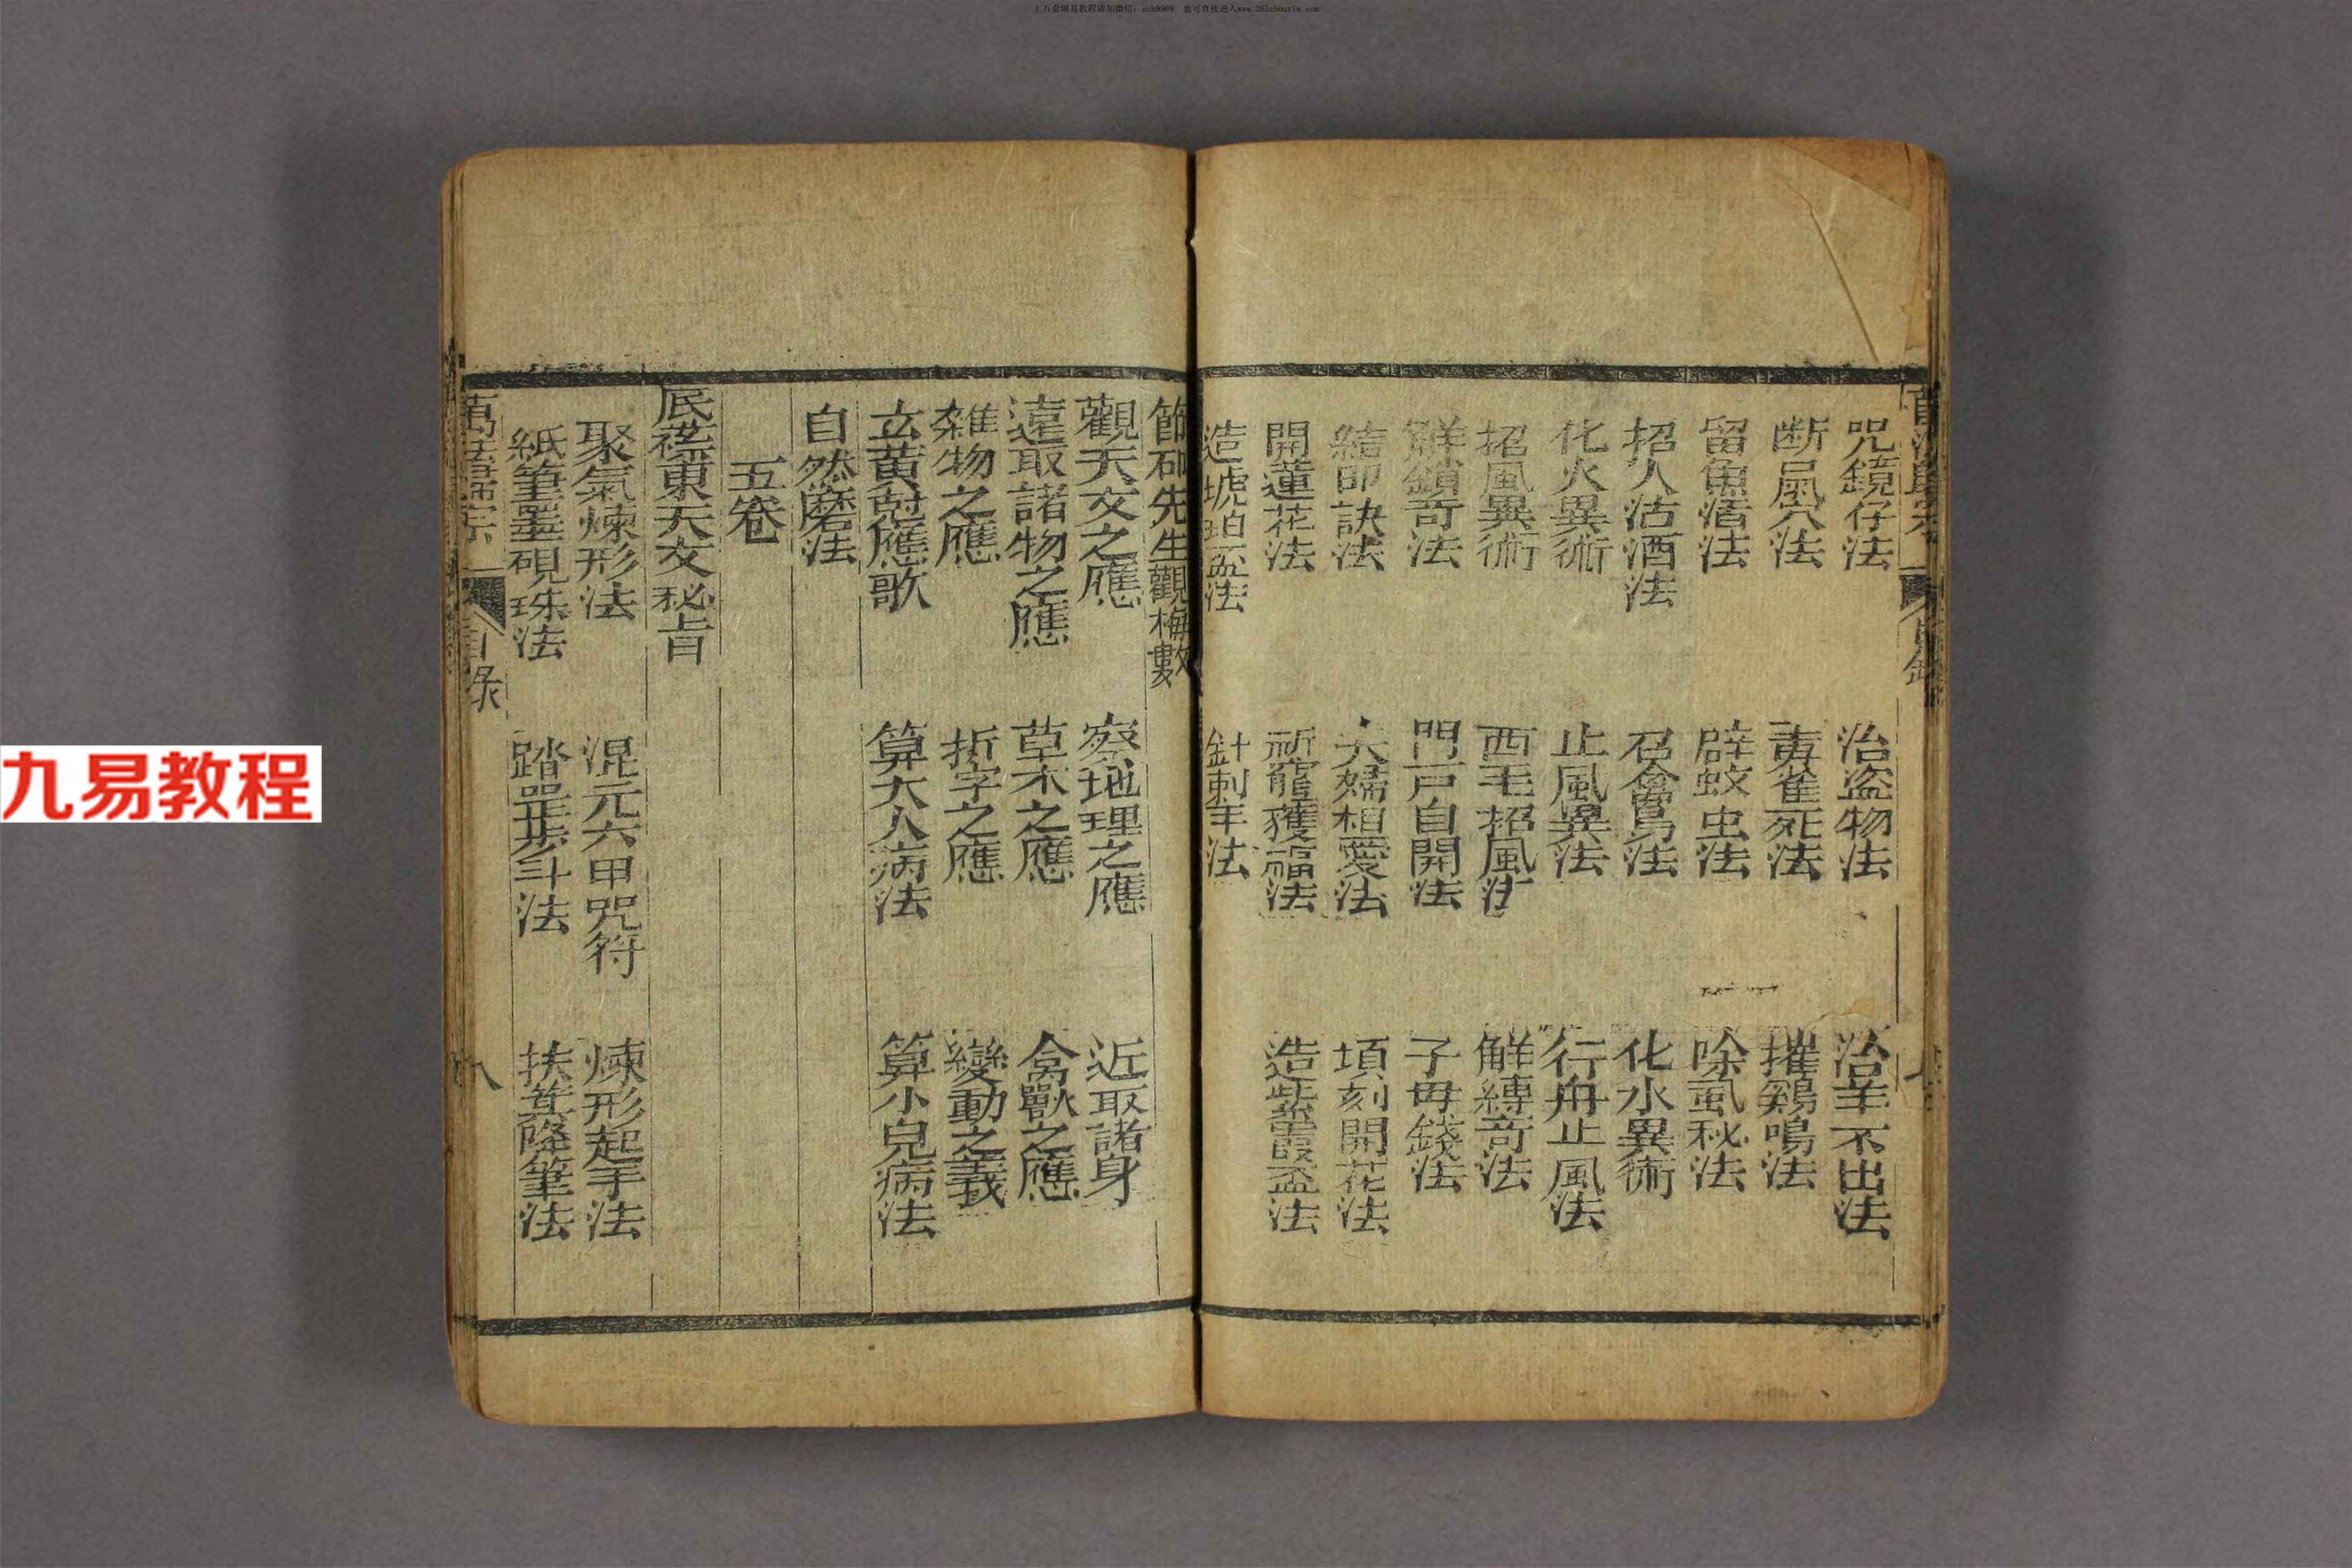 上万套周易教程请加微信：zxh9969 也可直接进入www.265zhouyiw.com
九易教程
目錄
七
咒鏡仔法 治盗物法 治羊不出法
断鼠穴法 毒雀死法 摧鷄鳴法
留魚酒法 辟蚊虫法 除虱秘法
招人沽酒法 召禽鳥法 化水異術
化火異術 止風異法 行舟止風法
招風異術 西毛招風法 解縳竒法
觧鎖竒法 門戸自開法 子母錢法
結印訣法 夫婦相愛法 項刻開花法
開蓮花法 祈竈獲福法 造紫霞盃法
造琥珀盃法 針刺羊法
節砠先生觀梅數
觀天文之應 察地理之應 近取諸身
遠取諸物之應 草木之應 禽獸之應
雑物之應 折字之應 變動之義
玄黄尅應歌 算大人病法 算小皃病法
自然磨法
五卷
底襟東天文秘旨
聚氣煉形法 混元六甲咒符 煉形起手法
紙筆墨硯珠法 踏罡步斗法 扶箕降筆法
萬法歸宗 目录
八